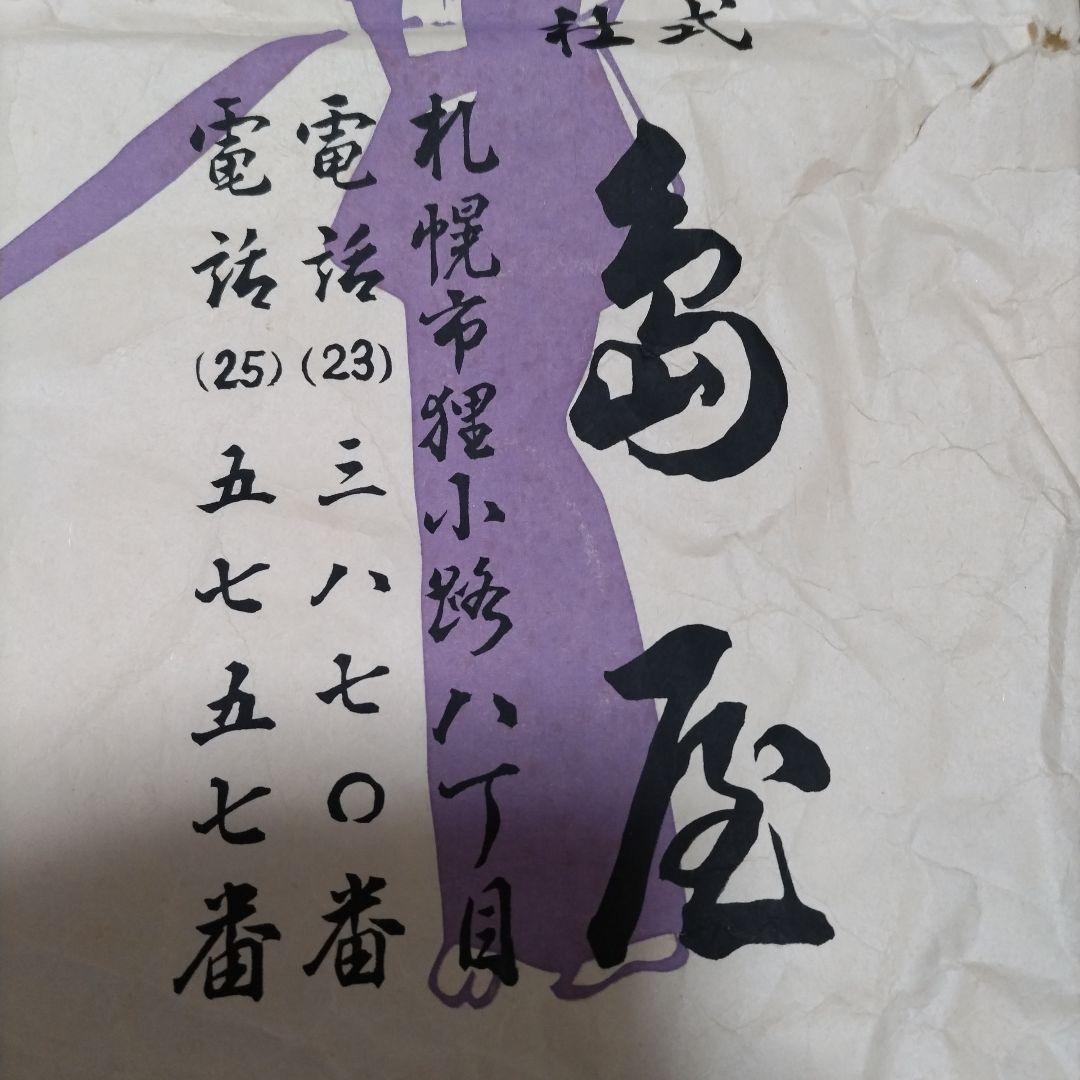 式
社
島屋
札幌市狸小路八丁目
電話(23)三八七〇番
電話(25)五七五七番